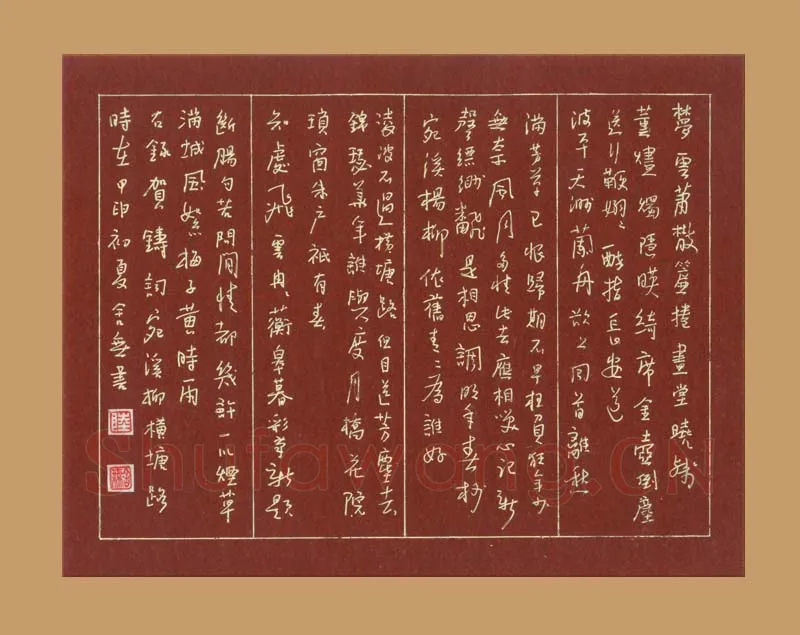 夢雲蕭散簾捲畫堂曉殘
薰燼燭隱映綺席金壺倒塵
送行鞭嫋〻醉指長安道
波平天渺蘭舟欲上回首離愁
滿芳草已恨歸期不早枉負狂年少
無奈風月多情此去應相笑心記新
聲縹緲翻是相思調明年春杪
宛溪楊柳依舊青〻為誰好
淩波不過橫塘路但目送芳塵去
錦瑟華年誰與度月橋花院
瑣窗朱户祇有春
知處飛雲冉〻蘅皋暮彩筆新題
斷腸句若問閒情都幾許一川煙草
滿城風絮梅子黃時雨
右錄賀鑄詞宛溪柳橫塘路
時在甲申初夏舍無書
陸
Shufawang.CN